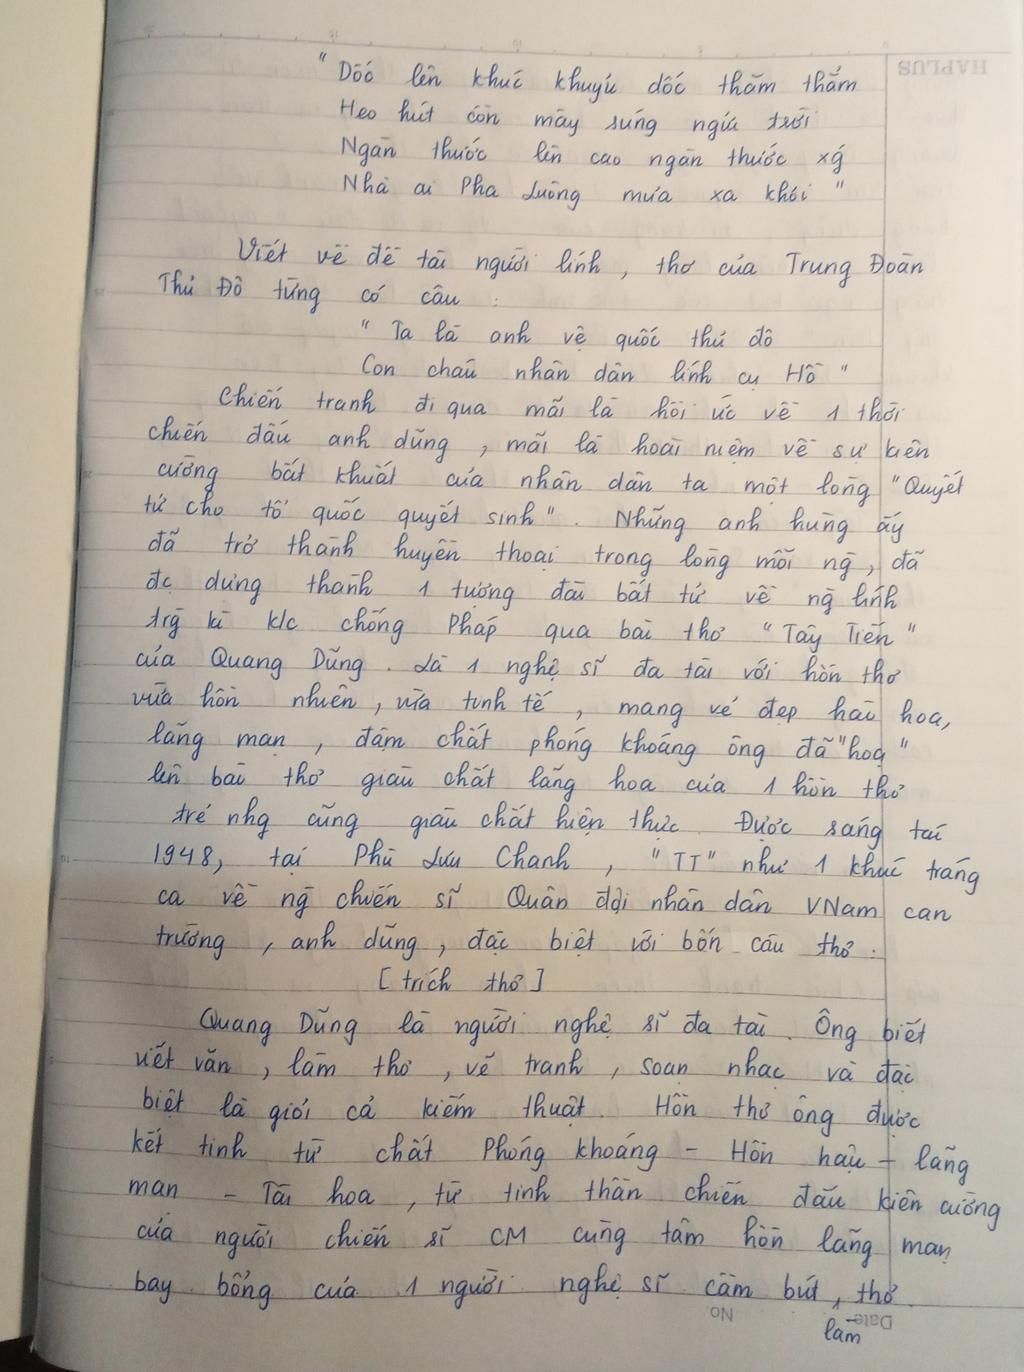 HAPLUS
"Dốc lên khúc khuỷu dốc thăm thẳm
Heo hút cồn mây súng ngửi trời
Ngàn thước lên cao ngàn thước xg
Nhà ai Pha Luông mưa xa khơi"
Viết về đề tài người lính, thơ của Trung Đoàn
Thủ Đô từng có câu :
"Ta là anh vệ quốc thủ đô
Con cháu nhân dân lính cụ Hồ"
Chiến tranh đi qua mãi là hồi ức về 1 thời
chiến đấu anh dũng, mãi là hoài niệm về sự kiên
cường bất khuất của nhân dân ta một lòng "Quyết
tử cho tổ quốc quyết sinh". Những anh hùng ấy
đã trở thành huyền thoại trong lòng mỗi ng, đã
đc dựng thành 1 tượng đài bất tử về ng lính
trg kì k/c chống Pháp qua bài thơ "Tây Tiến"
của Quang Dũng. Là 1 nghệ sĩ đa tài với hồn thơ
vừa hồn nhiên, vừa tinh tế, mang vẻ đẹp hào hoa,
lãng mạn, đậm chất phóng khoáng ông đã "hoạ"
lên bài thơ giàu chất lãng hoa của 1 hồn thơ
trẻ nhg cũng giàu chất hiện thực. Được sáng tác
1948, tại Phù Lưu Chanh, "TT" như 1 khúc tráng
ca về ng chiến sĩ Quân đội nhân dân VNam can
trường, anh dũng, đặc biệt với bốn câu thơ :
[trích thơ]
Quang Dũng là người nghệ sĩ đa tài. Ông biết
viết văn, làm thơ, vẽ tranh, soạn nhạc và đặc
biệt là giỏi cả kiếm thuật. Hồn thơ ông được
kết tinh từ chất Phóng khoáng - Hồn hậu - lãng
mạn - Tài hoa, từ tinh thần chiến đấu kiên cường
của người chiến sĩ CM cùng tâm hồn lãng mạn
bay bổng của 1 người nghệ sĩ cầm bút, làm thơ.
Date
No